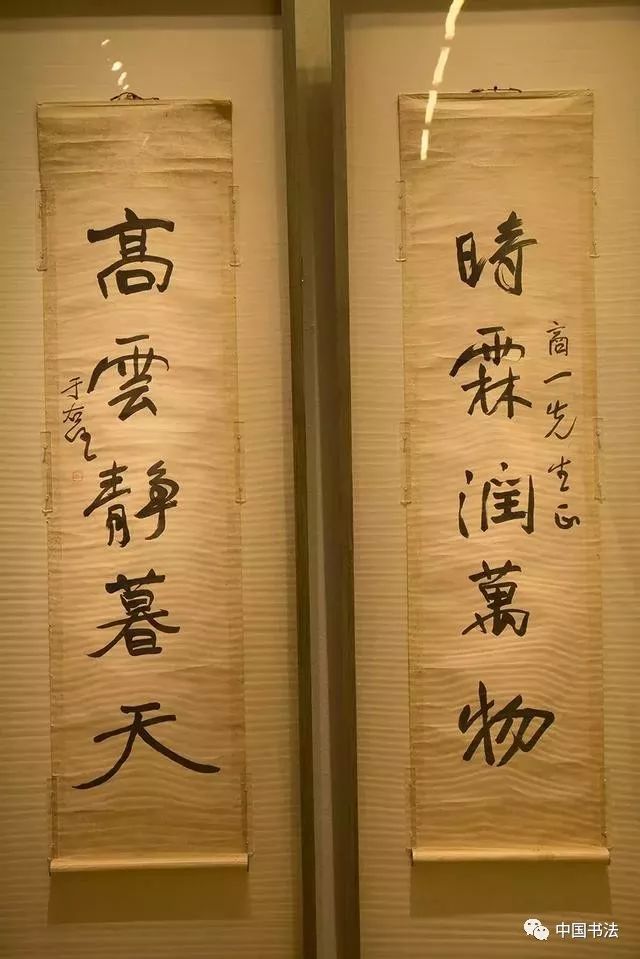 時霖潤萬物
商一先生正
高雲靜暮天
于右任
中国书法